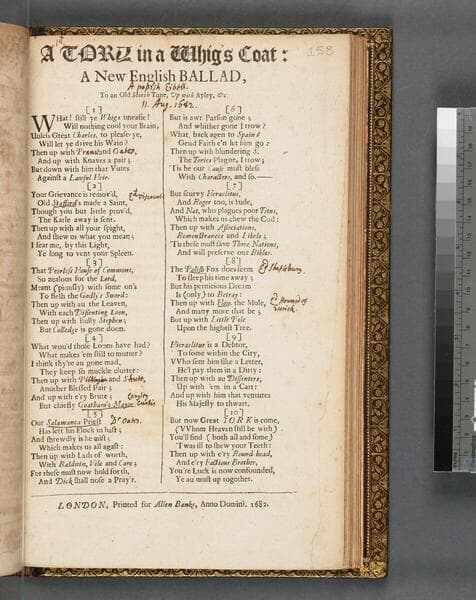 158
A TORY in a Whig's Coat:
A New English BALLAD,
A popish Libell.
To an Old Scotch Tune, Up with Ayley, &c.
11. Aug. 1682.
[1]
WHat! still ye Whigs uneasie!
Will nothing cool your Brain,
Unless Great Charles, to please-ye,
Will let ye drive his Wain?
Then up with Prance and Oates,
And up with Knaves a pair;
But down with him that Votes
Against a Lawful Heir.
[2]
Your Grievance is remov'd,
Old Stafford's made a Saint,
Though you but little prov'd,
The Earle away is sent.
Then up with all your spight,
And shew us what you mean;
I fear me, by this Light,
Ye long to vent your Spleen.
[3]
That Peerless House of Commons,
So zealous for the Lord,
Meant (piously) with som on's
To flesh the Godly's Sword:
Then up with au the Leaven,
With each Dissenting Loon,
Then up with Bully Stephen;
But Colledge is gone doon.
[4]
What wou'd those Loons have had?
What makes 'em still to mutter?
I think they're au gone mad,
They keep so muckle clutter:
Then up with and Shute,
Another Blessed Pair;
And up with e'ry Brute;
But chiefly Goatham's Mayor.
[5]
Our Salamanca Priest
Dr Oates.
Has left his Flock in hast;
And shrewdly is he mist;
Which makes us all agast:
Then up with Lads of worth,
With Baldwin, Vile and Care;
For these must now hold forth,
And Dick shall nose a Pray'r.
[6]
But is awr Parson gone;
And whither gone I trow?
What, back apen to Spain?
Geud Faith e'n let him go:
Then up with blundering S.
The Tories Plague, I trow;
'Tis he our Cause must bless
With Characters, and so.——
[7]
But scurvy Heraclitus,
And Roger too, is rude,
And Nat, who plagues poor Titus,
Which makes us chew the Cud:
Then up with Associations,
Remonstrances and Libels;
'Tis these must save Three Nations,
And will preserve our Bibles.
[8]
The Polish Fox does seem
E. Shaftsbury.
To sleep his time away;
But his pernicious Dream
Is (only) to Betray:
Then up with the Mole,
And many more that be;
But up with Little Pole
Upon the highest Tree.
[9]
Heraclitus is a Debtor,
To some within the City,
VVho sent him sike a Letter,
He'l pay them in a Ditty:
Then up with au Dissenters,
Up with 'em in a Cart:
And up with him that ventures
His Majesty to thwart.
[10]
But now Great YORK is come,
(VVhom Heaven still be with)
You'll find (both all and some)
T'was ill to shew your Teeth:
Then up with e'ry Round-head,
And e'ry Factious Brother,
You're Luck is now confounded,
Ye au must up together.
LONDON, Printed for Allen Banks, Anno Domini. 1682.